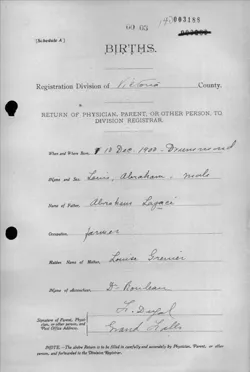 60-65
003188
[Schedule A.]
BIRTHS.
Registration Division of Victoria County.
RETURN OF PHYSICIAN, PARENT, OR OTHER PERSON, TO
DIVISION REGISTRAR.
When and Where Born, 10 Dec. 1900 - Drummond
Name and Sex, Louis, Abraham, male
Name of Father, Abraham
Occupation, farmer
Maiden Name of Mother, Louise Grenier
Name of Accoucheur, Dr.
Signature of Parent, Physician, or other person, and Post Office Address.
Grand Falls
NOTE.—The above Return is to be filled in carefully and accurately by Physician, Parent, or other person, and forwarded to the Division Registrar.